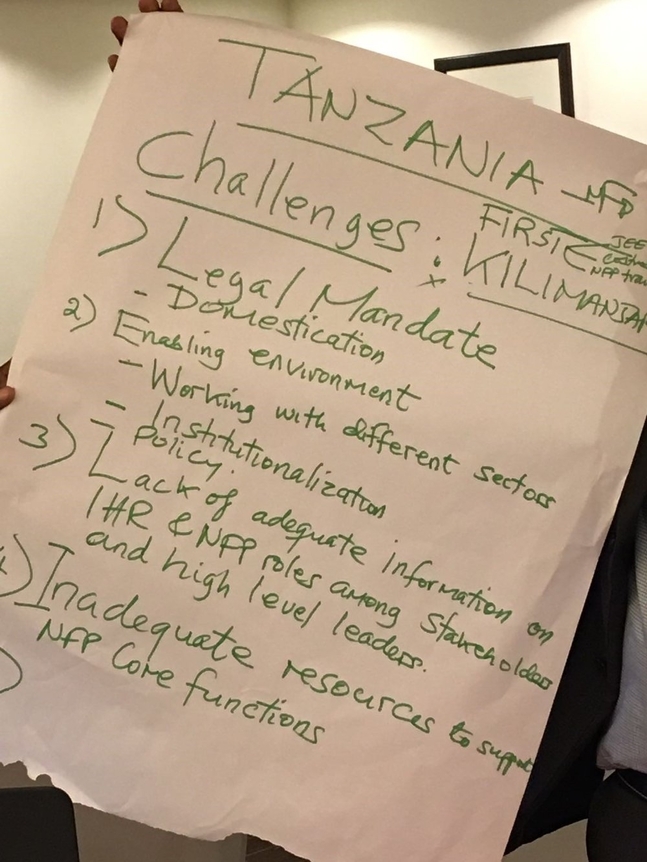 TANZANIA
FIRST JEE
NFP
KILIMANJAR
Challenges:
1) Legal Mandate
- Domestication
2) Enabling environment
- Working with different sectors
- Institutionalization
- Policy.
3) Lack of adequate information on
IHR & NFP roles among stakeholders
and high level leaders.
4) Inadequate resources to support
NFP Core functions